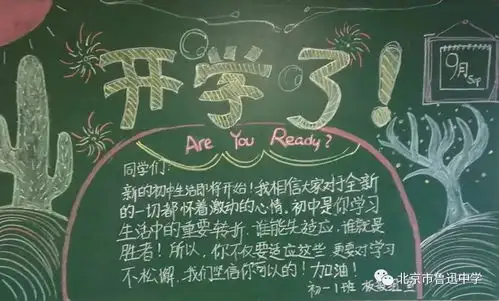 开学了!
9月
Sep
Are You Ready?
同学们:
新的初中生活即将开始!我相信大家对于全新
的一切都怀着激动的心情。初中是你学习
生活中的重要转折,谁能先适应,谁就是
胜者!所以,你不仅要适应这些,更要对学习
不松懈,我们坚信你可以的!加油!
初一1班
北京市鲁迅中学